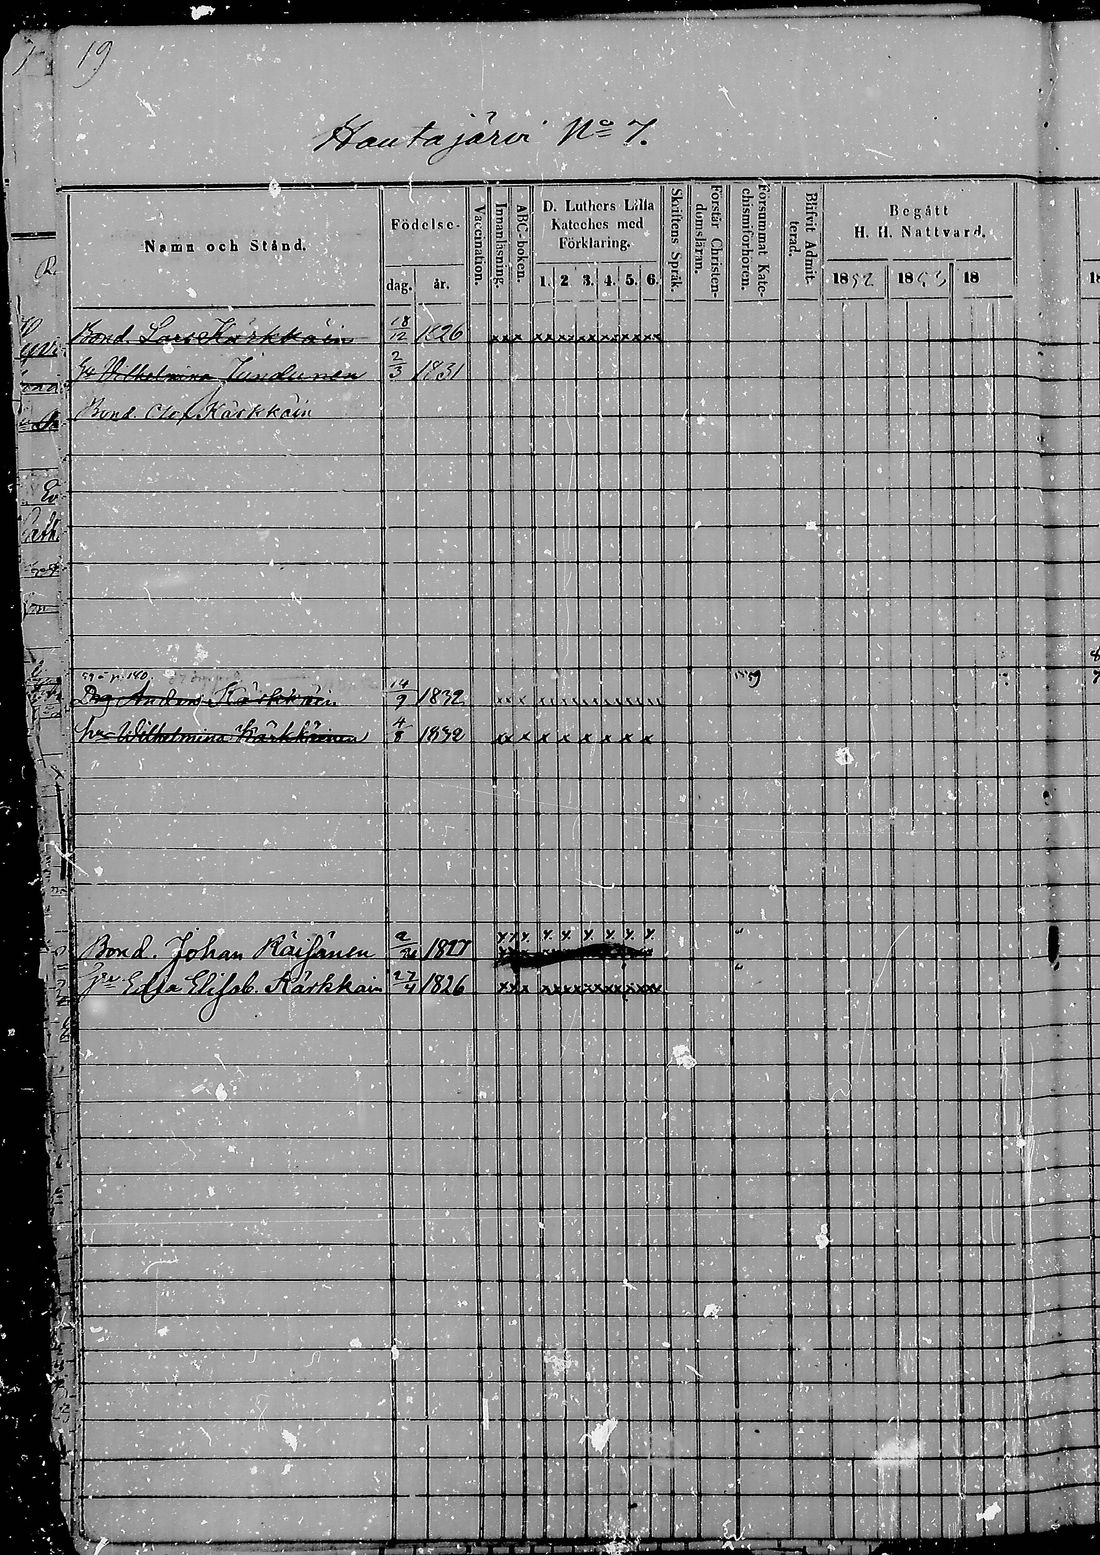 19
Hautajärvi No 7.
Namn och Stånd.
Födelse-
dag. år.
Vaccination.
Innanläsning.
ABC-boken.
D. Luthers Lilla
Kateches med
Förklaring.
1. 2 3. 4. 5. 6.
Skriftens Språk.
Förstår Christen-
domsläran.
Försummat Kate-
chismiförhören.
Blifvit Admit-
terad.
Begått
H. H. Nattvard.
1852 1853 18
Bond. Lars Kärkkäin 18/12 1826
Vilhelmina 2/3 1831
Bond Olof Kärkkäin
Drg Anders Kärkkäin 14/9 1832
Wilhelmina Kärkkäinen 4/8 1832
Bond. Johan Räisänen 1827
Edla Elisab. Kärkkäin 27/4 1826